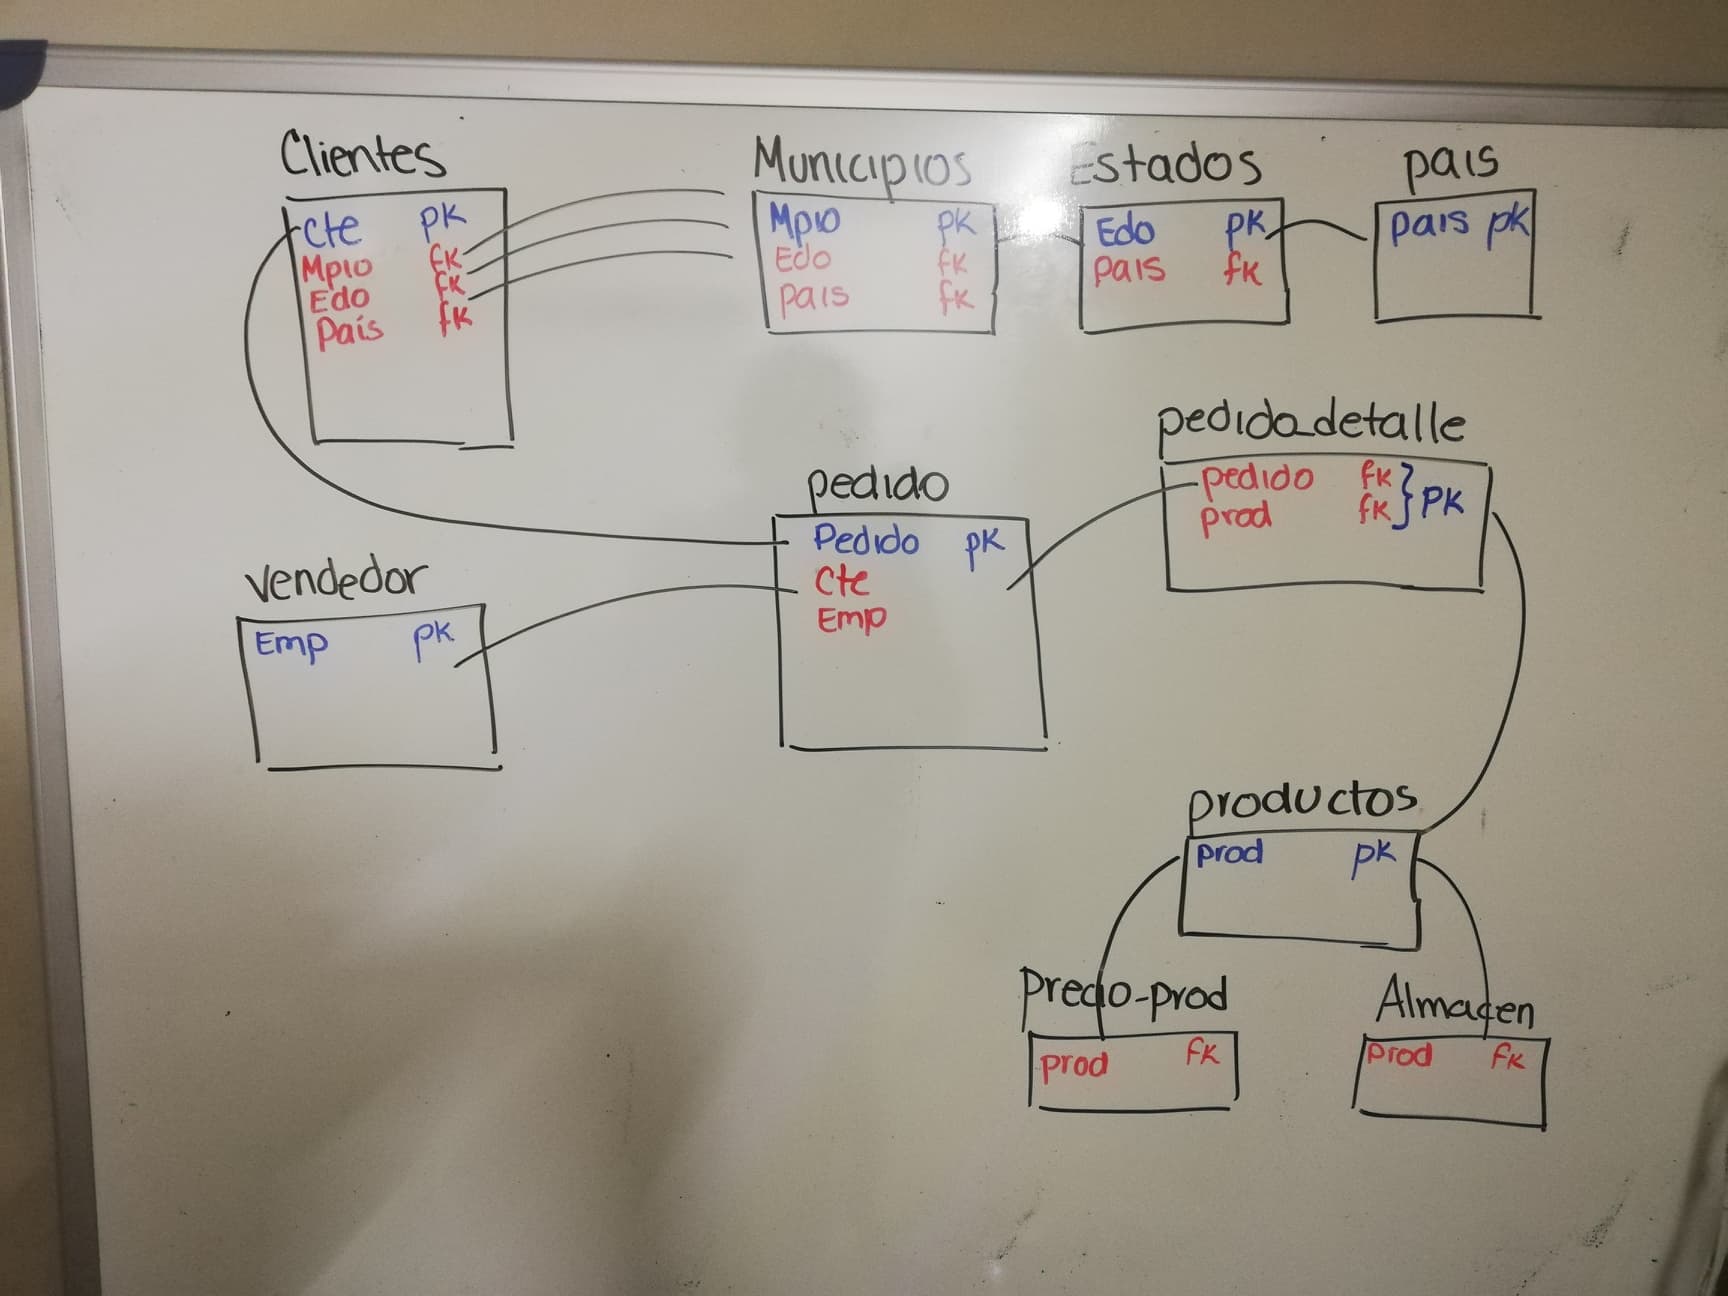 Clientes
Cte pk
Mpio fk
Edo fk
País fk
Municipios
Mpio pk
Edo fk
pais fk
Estados
Edo pk
pais fk
pais
pais pk
pedido_detalle
pedido fk } PK
prod fk
pedido
Pedido pk
Cte
Emp
vendedor
Emp pk
productos
prod pk
precio-prod
prod fk
Almacen
prod fk